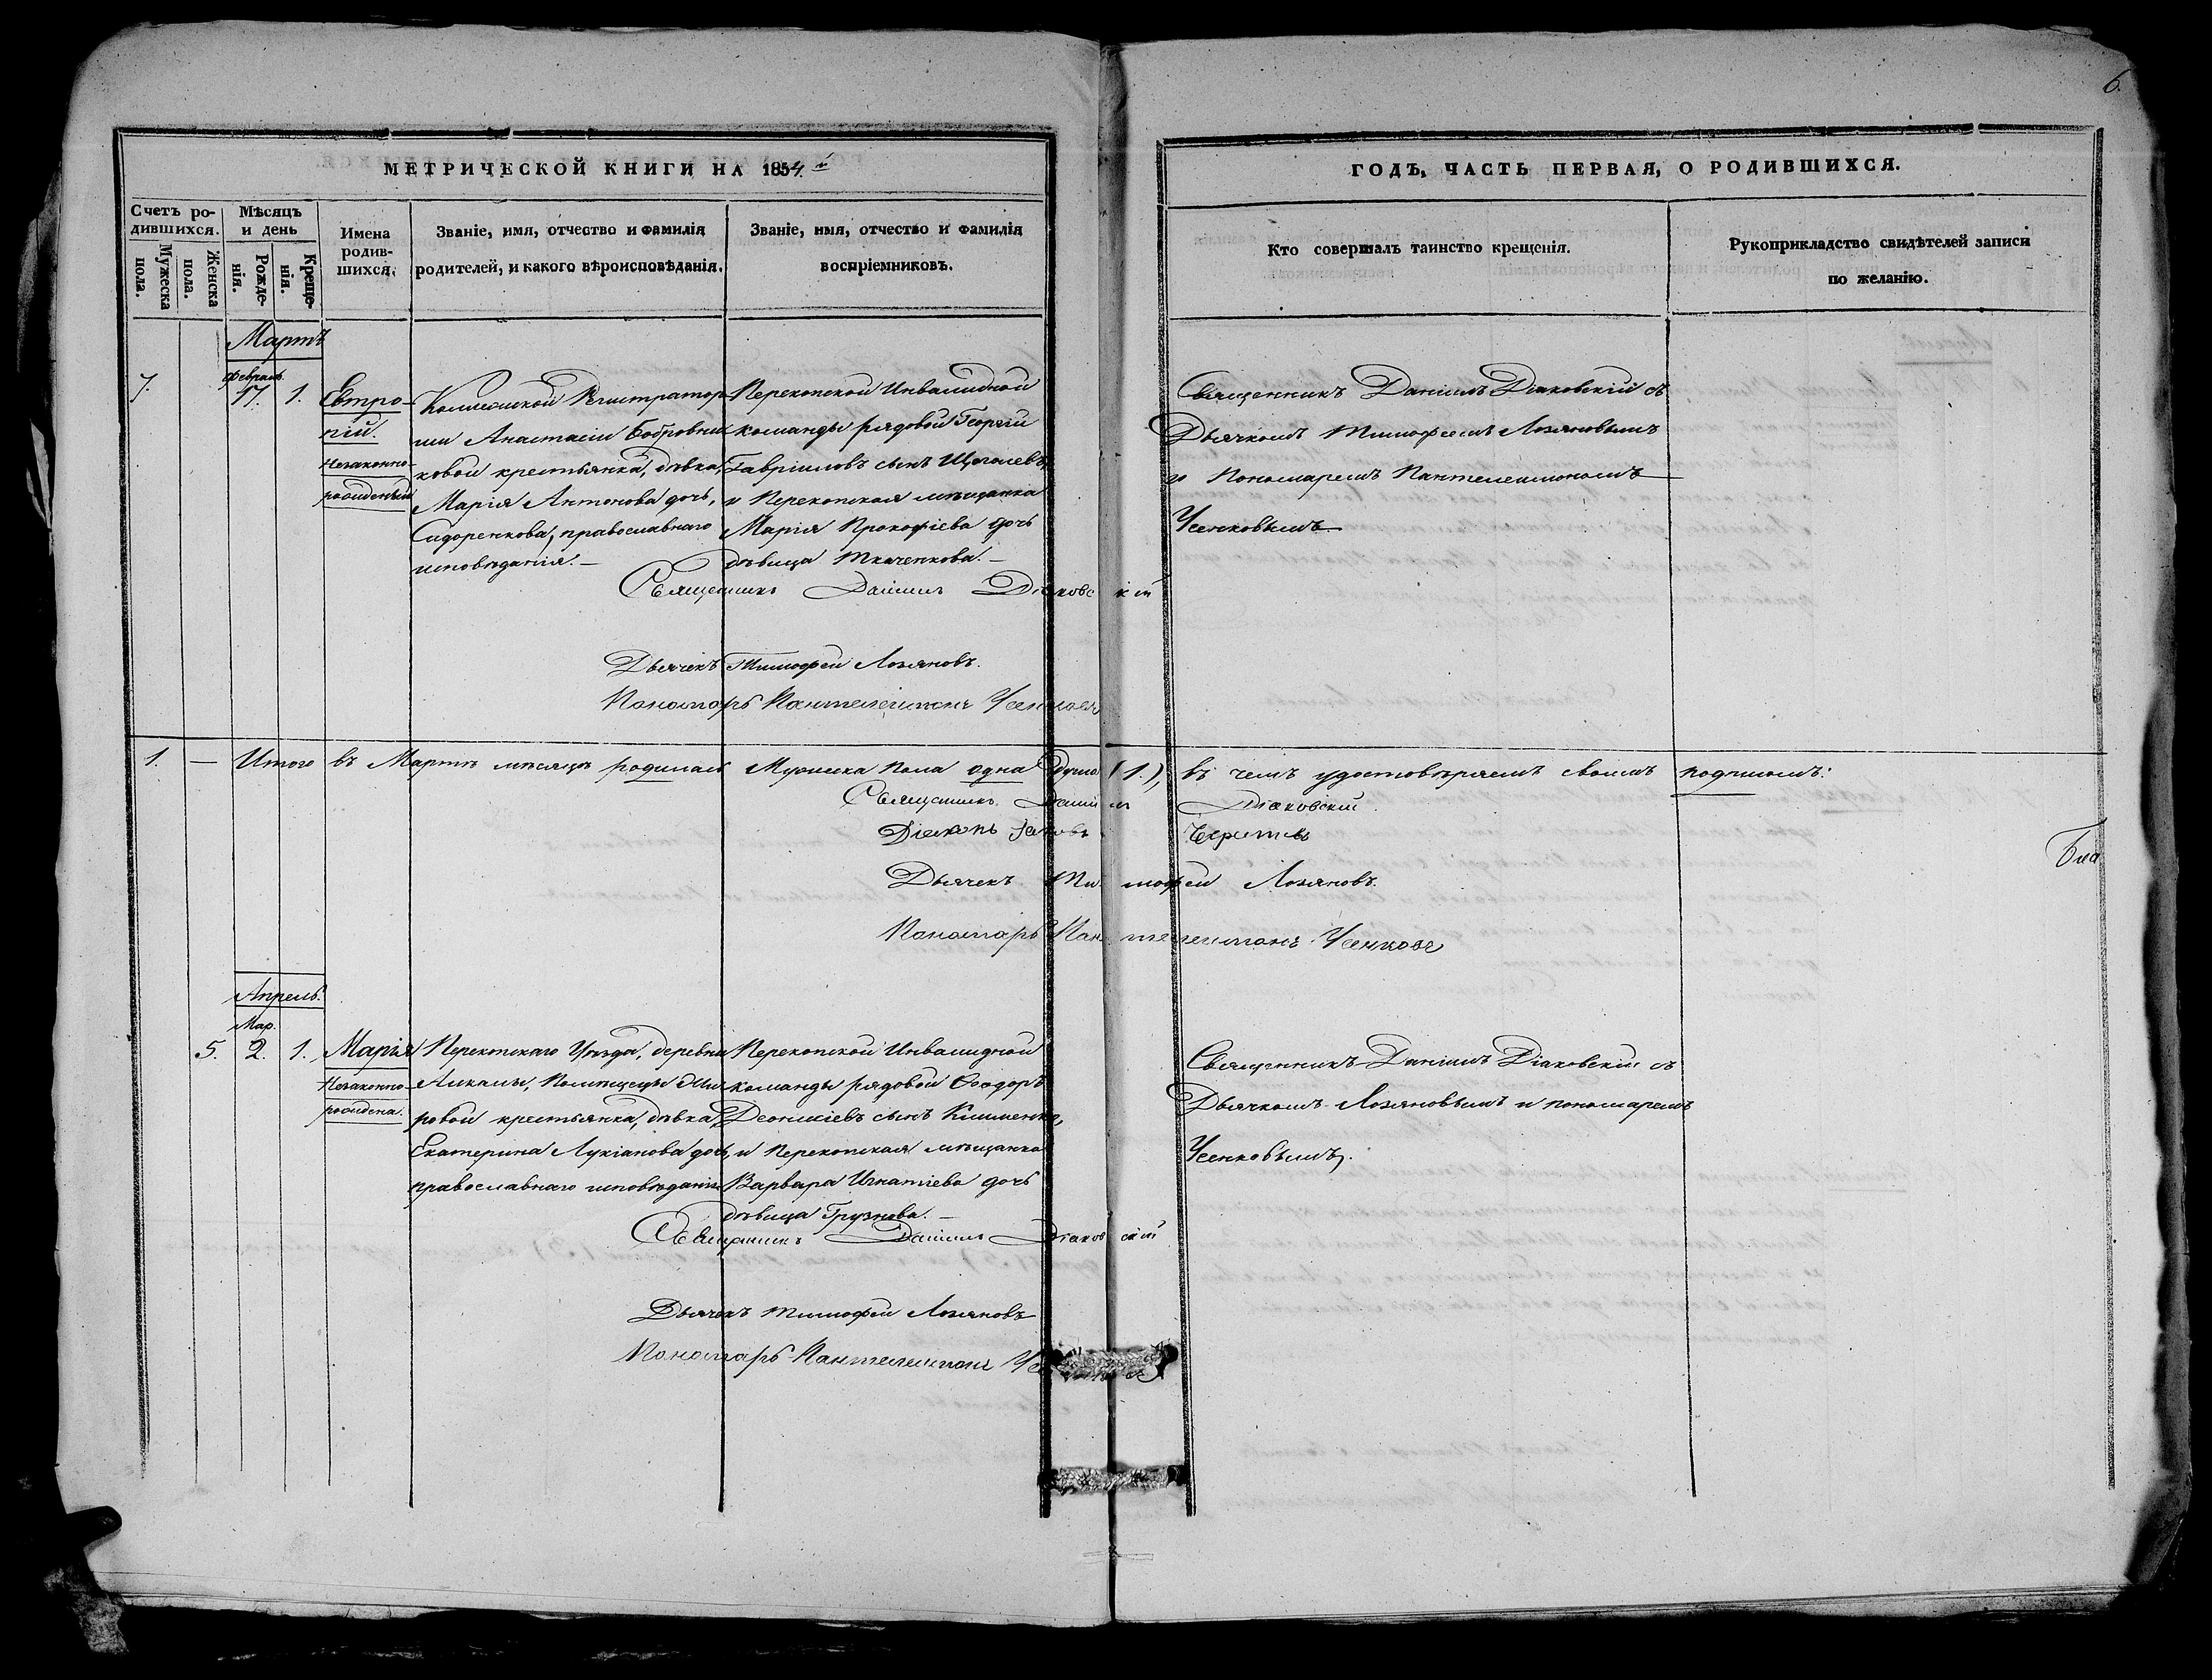 6.
МЕТРИЧЕСКОЙ КНИГИ НА 1854.й
ГОДЪ, ЧАСТЬ ПЕРВАЯ, О РОДИВШИХСЯ.
Счетъ ро-
дившихся.
Мужеска
пола.
Женска
пола.
Мѣсяцъ
и день
Рожде-
нія.
Креще-
нія.
Имена
родив-
шихся.
Званіе, имя, отчество и фамилія
родителей, и какого вѣроисповѣданія.
Званіе, имя, отчество и фамилія
воспріемниковъ.
Кто совершалъ таинство крещенія.
Рукоприкладство свидѣтелей записи
по желанію.
Мартъ
7.
Февраль.
17. 1.
Евтро-
пій.
Незаконно-
рожденный
Коллежской Регистратор-
ши Анастасіи Бобровни-
ковой крестьянка, дѣвка,
Марія Антонова дочь,
Сидоренкова, православнаго
исповѣданія.—
Перекопской Инвалидной
команды рядовой Георгій
Гавріиловъ сынъ Щоголевъ,
и Перекопская мѣщанка
Марія Прокофіева дочь
дѣвица Ткаченкова.—
Священникъ Даніилъ Діаковскій съ
Дьячкомъ Тимофеемъ Лозяновымъ
и Пономаремъ Пантелеимономъ
Усенковымъ
Священникъ Даніилъ Діаковскій
Дьячекъ Тимофей Лозяновъ.
Пономарь Пантелеимонъ Усенковъ
1. — Итого въ Мартѣ мѣсяцѣ родилась Мужеска пола одна душа (1.), въ чемъ удостовѣряемъ своимъ подписомъ:
Священникъ Даніилъ Діаковскій.
Діаконъ Іаковъ
Дьячекъ Тимофей Лозяновъ.
Пономарь Пантелеимонъ Усенковъ
Апрель.
Мар.
5. 2. 1.
Марія
Незаконно-
рождена.
Перекопскаго Уѣзда, деревни
крестьянка, дѣвка,
Екатерина Лукіанова дочь,
православнаго исповѣданія
Перекопской Инвалидной
команды рядовой Ѳеодоръ
сынъ Клименко,
и Перекопская мѣщанка
Варвара Игнатіева дочь
дѣвица Грузнова.—
Священникъ Даніилъ Діаковскій съ
Дьячкомъ Лозяновымъ и пономаремъ
Усенковымъ.
Священникъ Даніилъ Діаковскій
Дьячекъ Тимофей Лозяновъ
Пономарь Пантелеимонъ